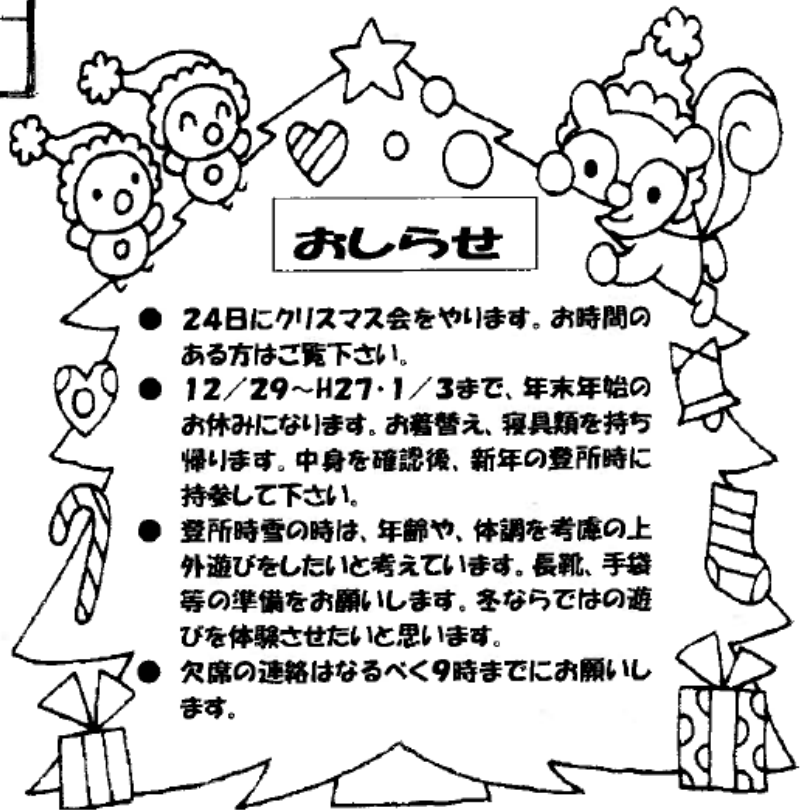 おしらせ
● 24日にクリスマス会をやります。お時間の
ある方はご覧下さい。
● 12／29～H27・1／3まで、年末年始の
お休みになります。お着替え、寝具類を持ち
帰ります。中身を確認後、新年の登所時に
持参して下さい。
● 登所時雪の時は、年齢や、体調を考慮の上
外遊びをしたいと考えています。長靴、手袋
等の準備をお願いします。冬ならではの遊
びを体験させたいと思います。
● 欠席の連絡はなるべく9時までにお願いし
ます。